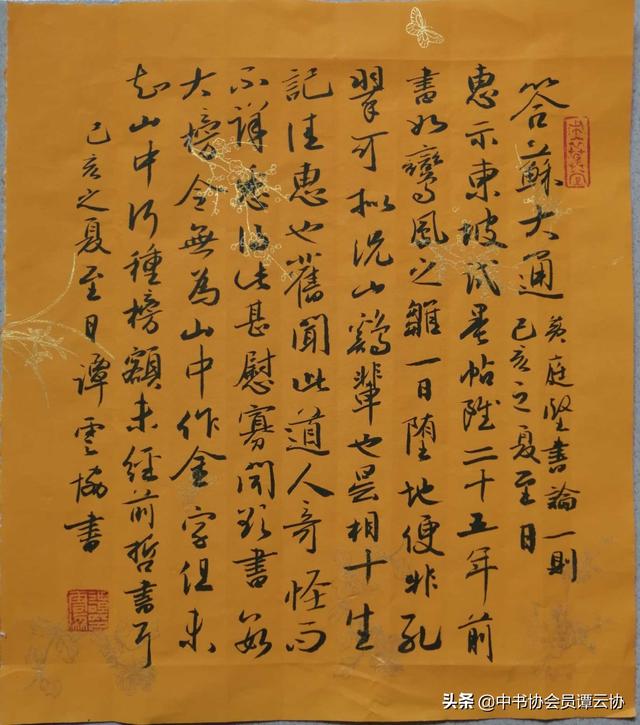 答蘇大通 黃庭堅書論一則
己亥之夏至日
惠示東坡試墨帖雖二十五年前
書如鸞鳳之雛一日墮地便非孔
翠可拟況山鷄輩也曇相十生
記佳惠也舊聞此道人奇怪而
不詳悉得此甚慰寡聞欲書數
大榜令無為山中作金字但未
知山中何種榜額未經前哲書耳
己亥之夏至日譚雲協書
头条 @中书协会员谭云协